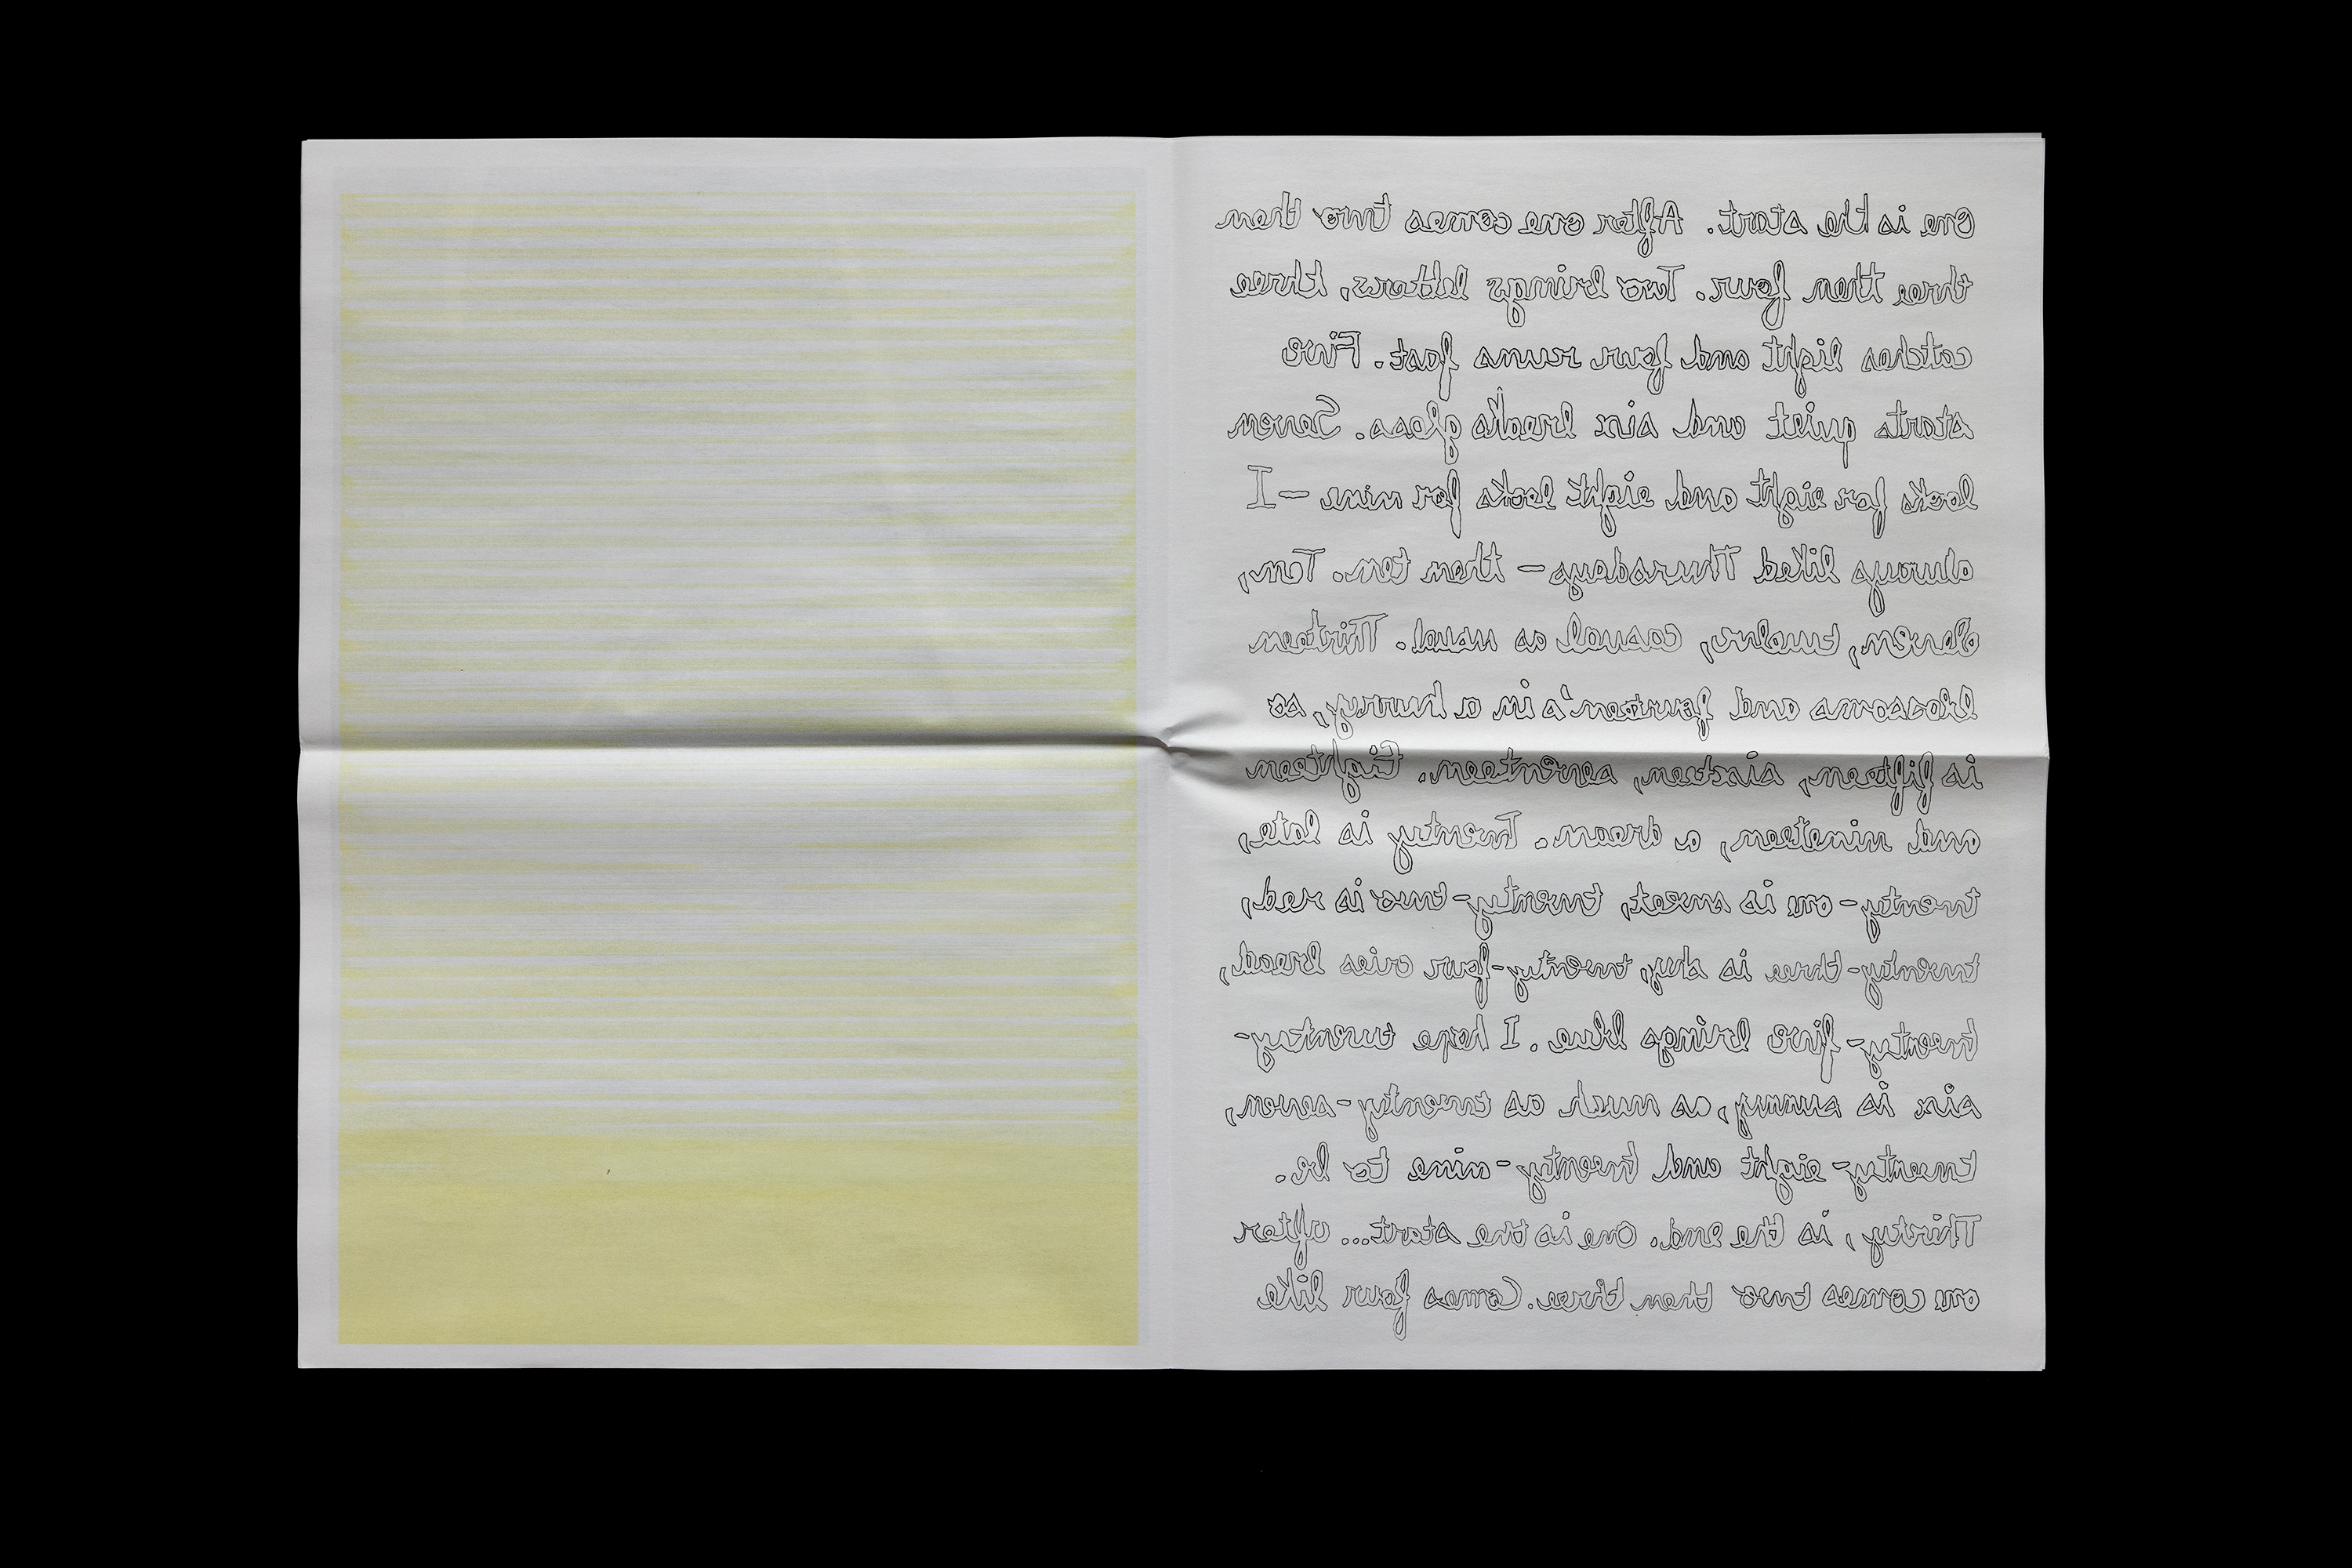 One is the start. After one comes two then
three then four. Two brings letters, three
catches light and four runs fast. Five
starts quiet and six breaks glass. Seven
looks for eight and eight looks for nine – I
always liked Thursdays – then ten. Ten,
Eleven, twelve, casual as usual. Thirteen
blossoms and fourteen's in a hurry, so
is fifteen, sixteen, seventeen. Eighteen
and nineteen, a dream. Twenty is late,
twenty-one is sweet, twenty-two is red,
twenty-three is shy, twenty-four cries bread,
twenty-five brings blue. I hope twenty-
six is sunny, as much as twenty-seven,
twenty-eight and twenty-nine to be.
Thirty, is the end. One is the start... after
one comes two then three. Comes four like